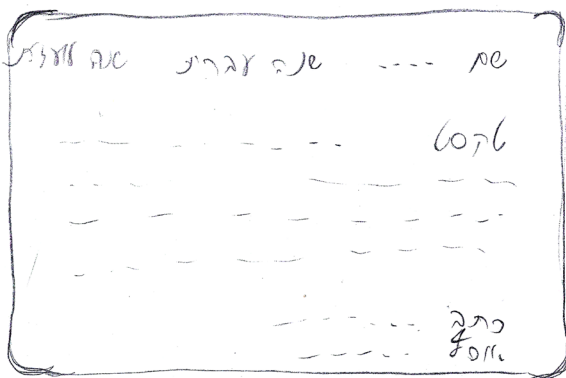 שם .... שנה עברית שנה לועזית
טקסט
כתב
אוסף